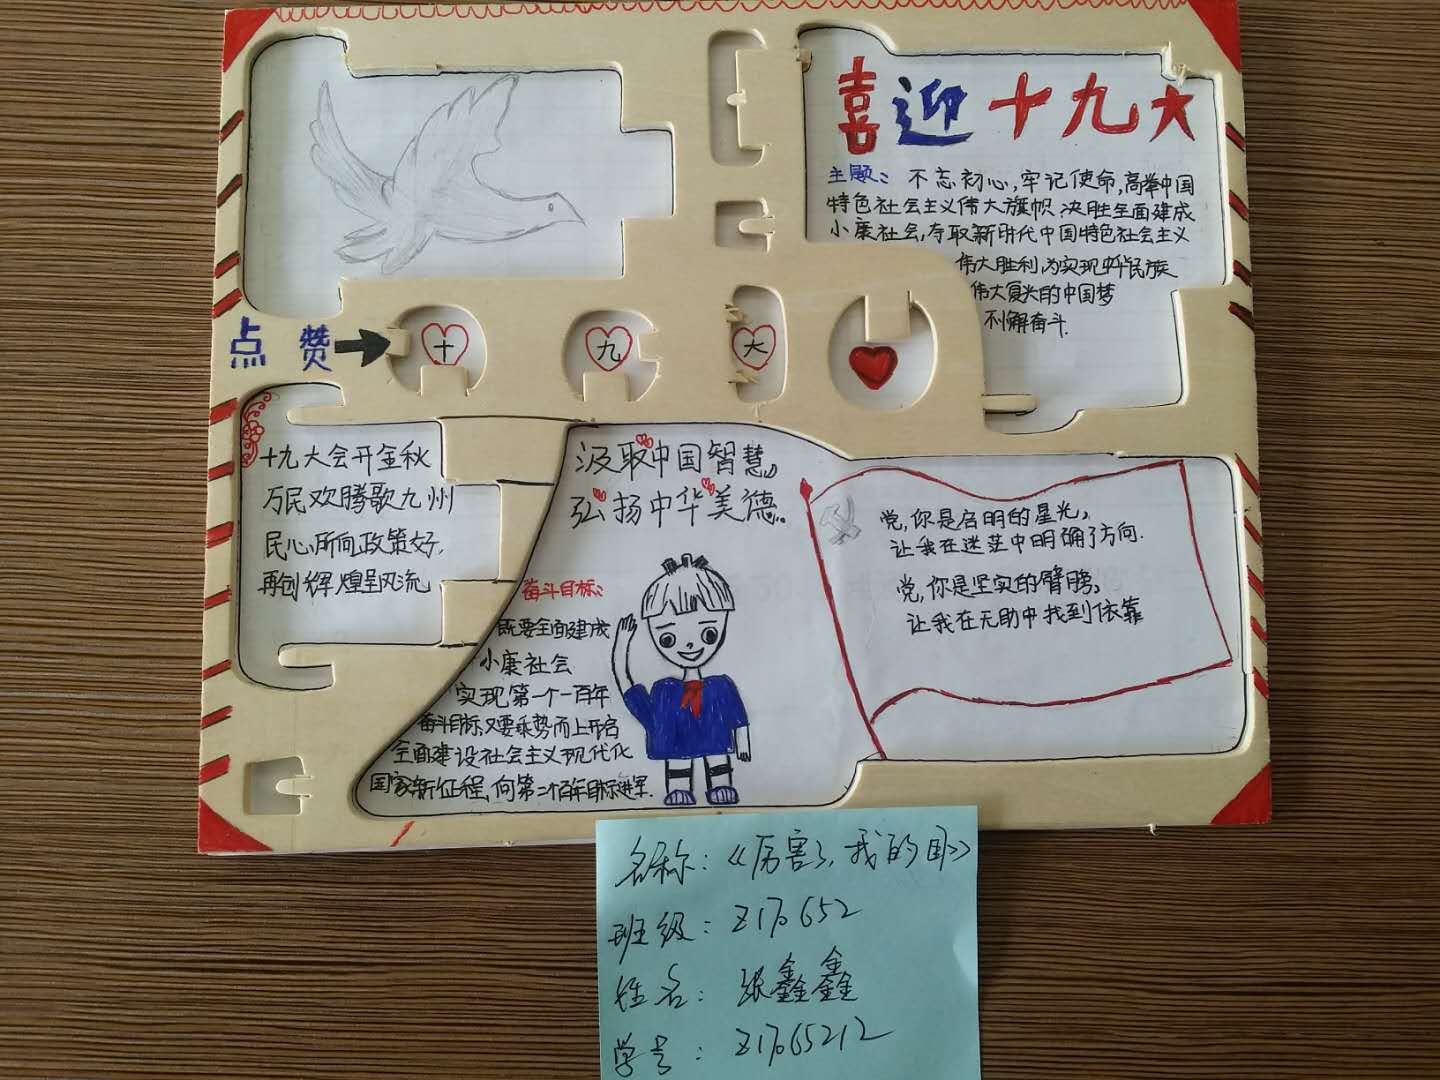 喜迎十九大
主题：不忘初心,牢记使命,高举中国
特色社会主义伟大旗帜 决胜全面建成
小康社会,夺取新时代中国特色社会主义
伟大胜利,为实现中华民族
伟大复兴的中国梦
不懈奋斗.
点赞
十
九
大
十九大会开金秋
万民欢腾歌九州
民心所向政策好,
再创辉煌呈风流
汲取中国智慧,
弘扬中华美德..
奋斗目标：
既要全面建成
小康社会
实现第一个一百年
奋斗目标,又要乘势而上开启
全面建设社会主义现代化
国家新征程,向第二个百年目标进军.
党,你是启明的星光,
让我在迷茫中明确了方向.
党,你是坚实的臂膀,
让我在无助中找到依靠
名称：《厉害了,我的国》
班级：Z170652
姓名：张鑫鑫
学号：Z17065212